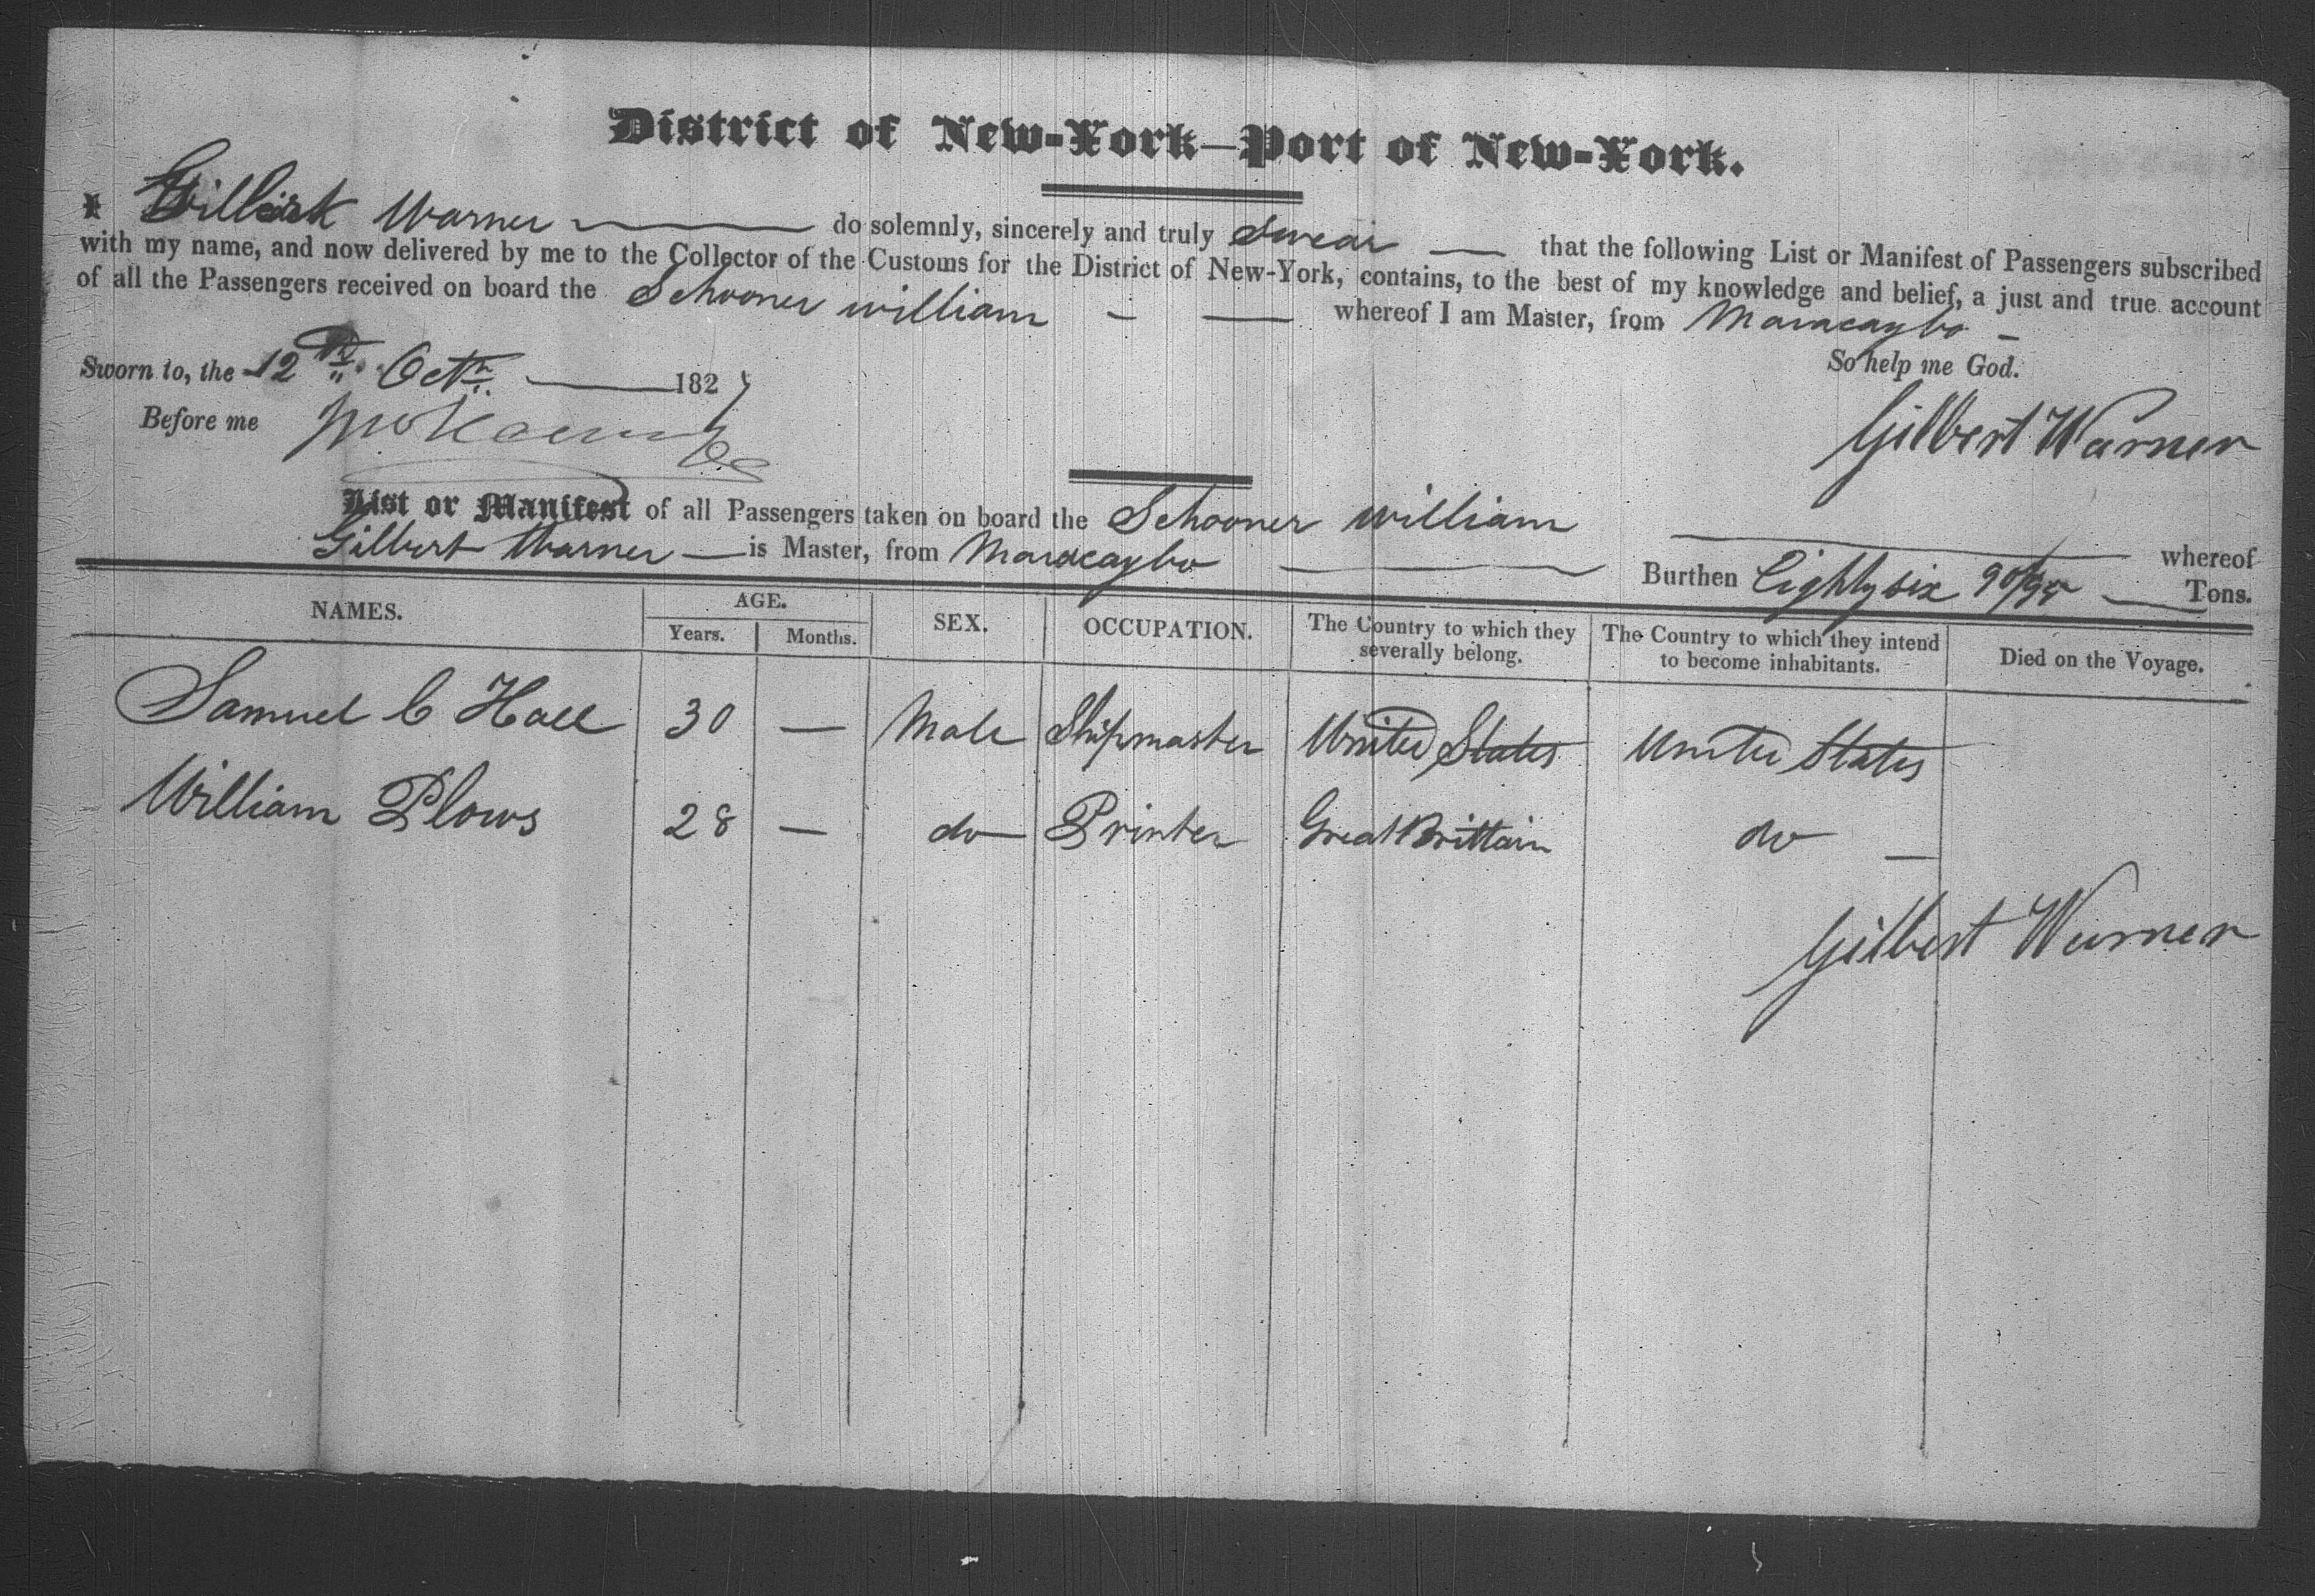 District of New-York—Port of New-York.
I Gilbert Warner — do solemnly, sincerely and truly Swear — that the following List or Manifest of Passengers subscribed
with my name, and now delivered by me to the Collector of the Customs for the District of New-York, contains, to the best of my knowledge and belief, a just and true account
of all the Passengers received on board the Schooner william - — whereof I am Master, from Maracaybo -
So help me God.
Sworn to, the 12th Octr — 1827
Before me
Gilbert Warner
List or Manifest of all Passengers taken on board the Schooner william — whereof
Gilbert Warner — is Master, from Maracaybo — Burthen Eighty six 90/95 — Tons.
NAMES. AGE. SEX. OCCUPATION. The Country to which they severally belong. The Country to which they intend to become inhabitants. Died on the Voyage.
Years. Months.
Samuel C Hall 30 — Male Shipmaster United States United States
William Plows 28 — do Printer Great Brittain do —
Gilbert Warner